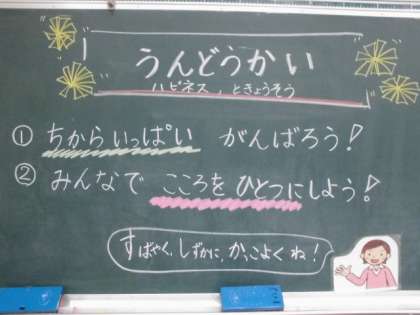 うんどうかい
ハピネス,ときょうそう
① ちからいっぱい がんばろう!
② みんなで こころを ひとつにしよう!
すばやく,しずかに,かっこよくね!